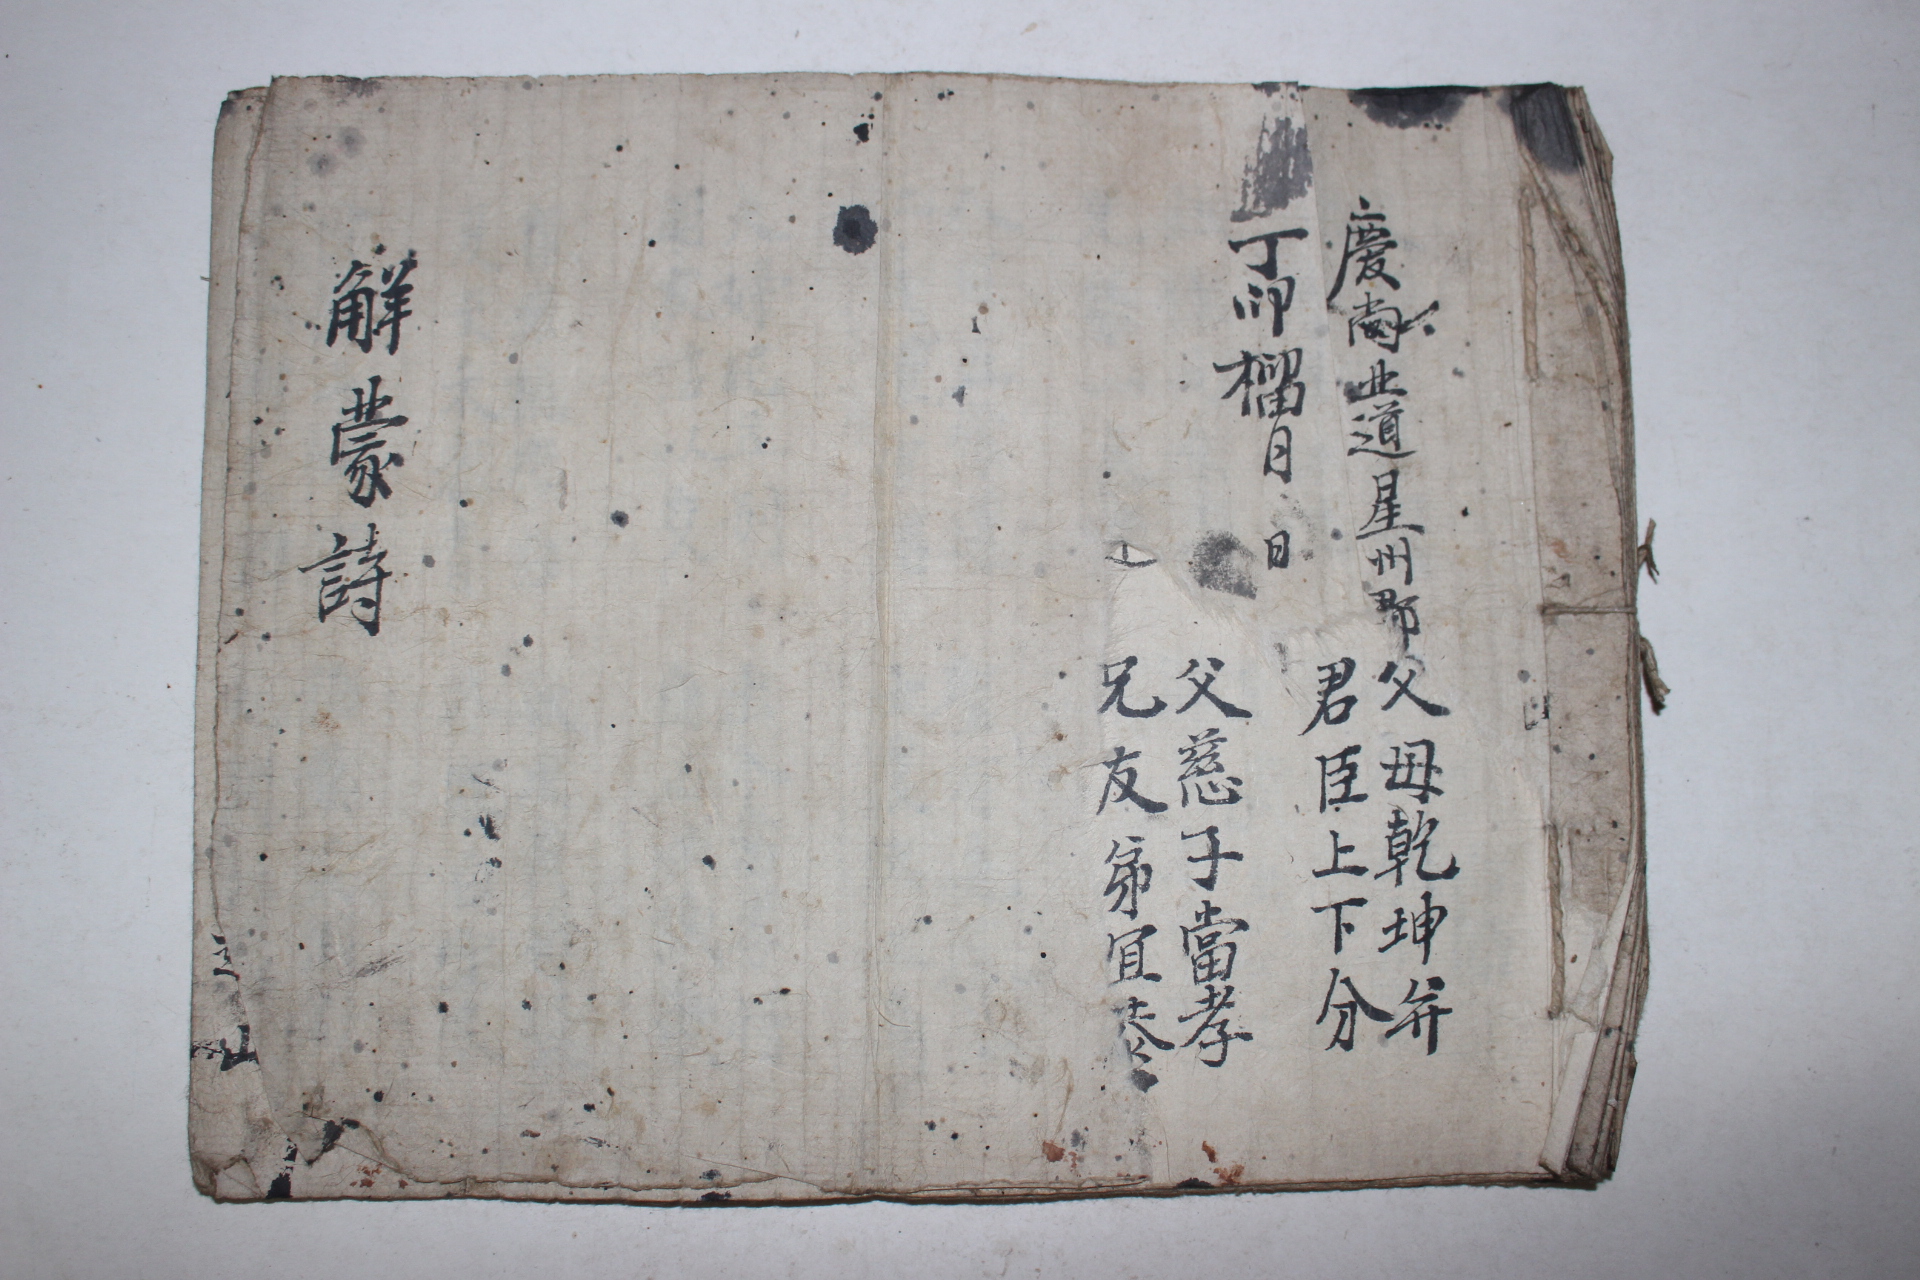 慶尙北道星州郡
父母乾坤并
君臣上下分
丁卯榴月 日
父慈子當孝
兄友弟宜恭
解蒙詩